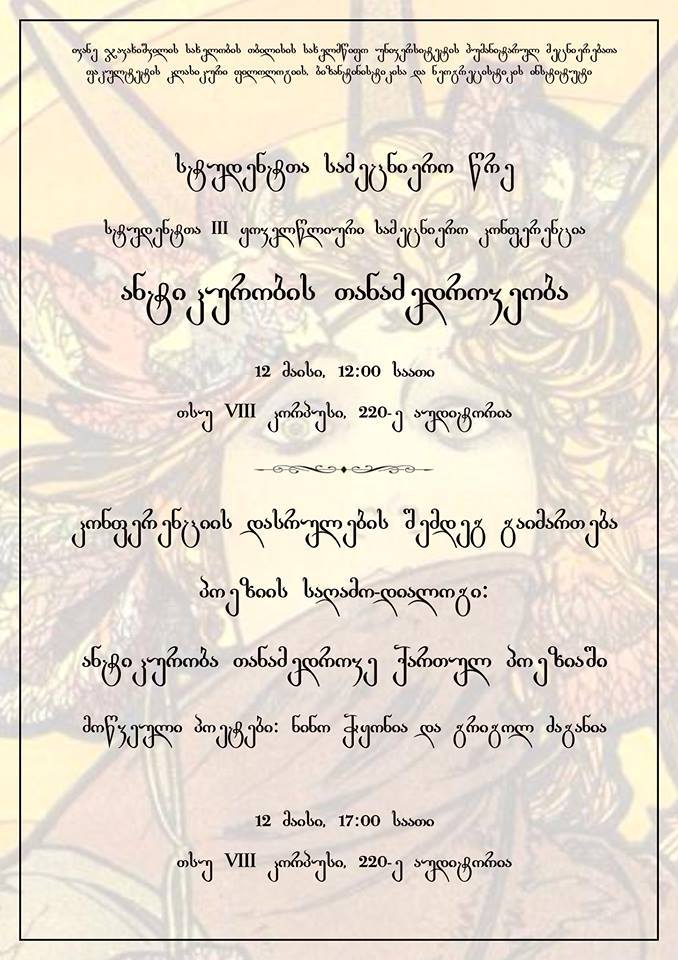 ივანე ჯავახიშვილის სახელობის თბილისის სახელმწიფო უნივერსიტეტის ჰუმანიტარულ მეცნიერებათა
ფაკულტეტის კლასიკური ფილოლოგიის, ბიზანტინისტიკისა და ნეოგრეცისტიკის ინსტიტუტი
სტუდენტთა სამეცნიერო წრე
სტუდენტთა III ყოველწლიური სამეცნიერო კონფერენცია
ანტიკურობის თანამედროვეობა
12 მაისი, 12:00 საათი
თსუ VIII კორპუსი, 220-ე აუდიტორია
კონფერენციის დასრულების შემდეგ გაიმართება
პოეზიის საღამო-დიალოგი:
ანტიკურობა თანამედროვე ქართულ პოეზიაში
მოწვეული პოეტები: ნინო ქყონია და გრიგოლ ძაგანია
12 მაისი, 17:00 საათი
თსუ VIII კორპუსი, 220-ე აუდიტორია